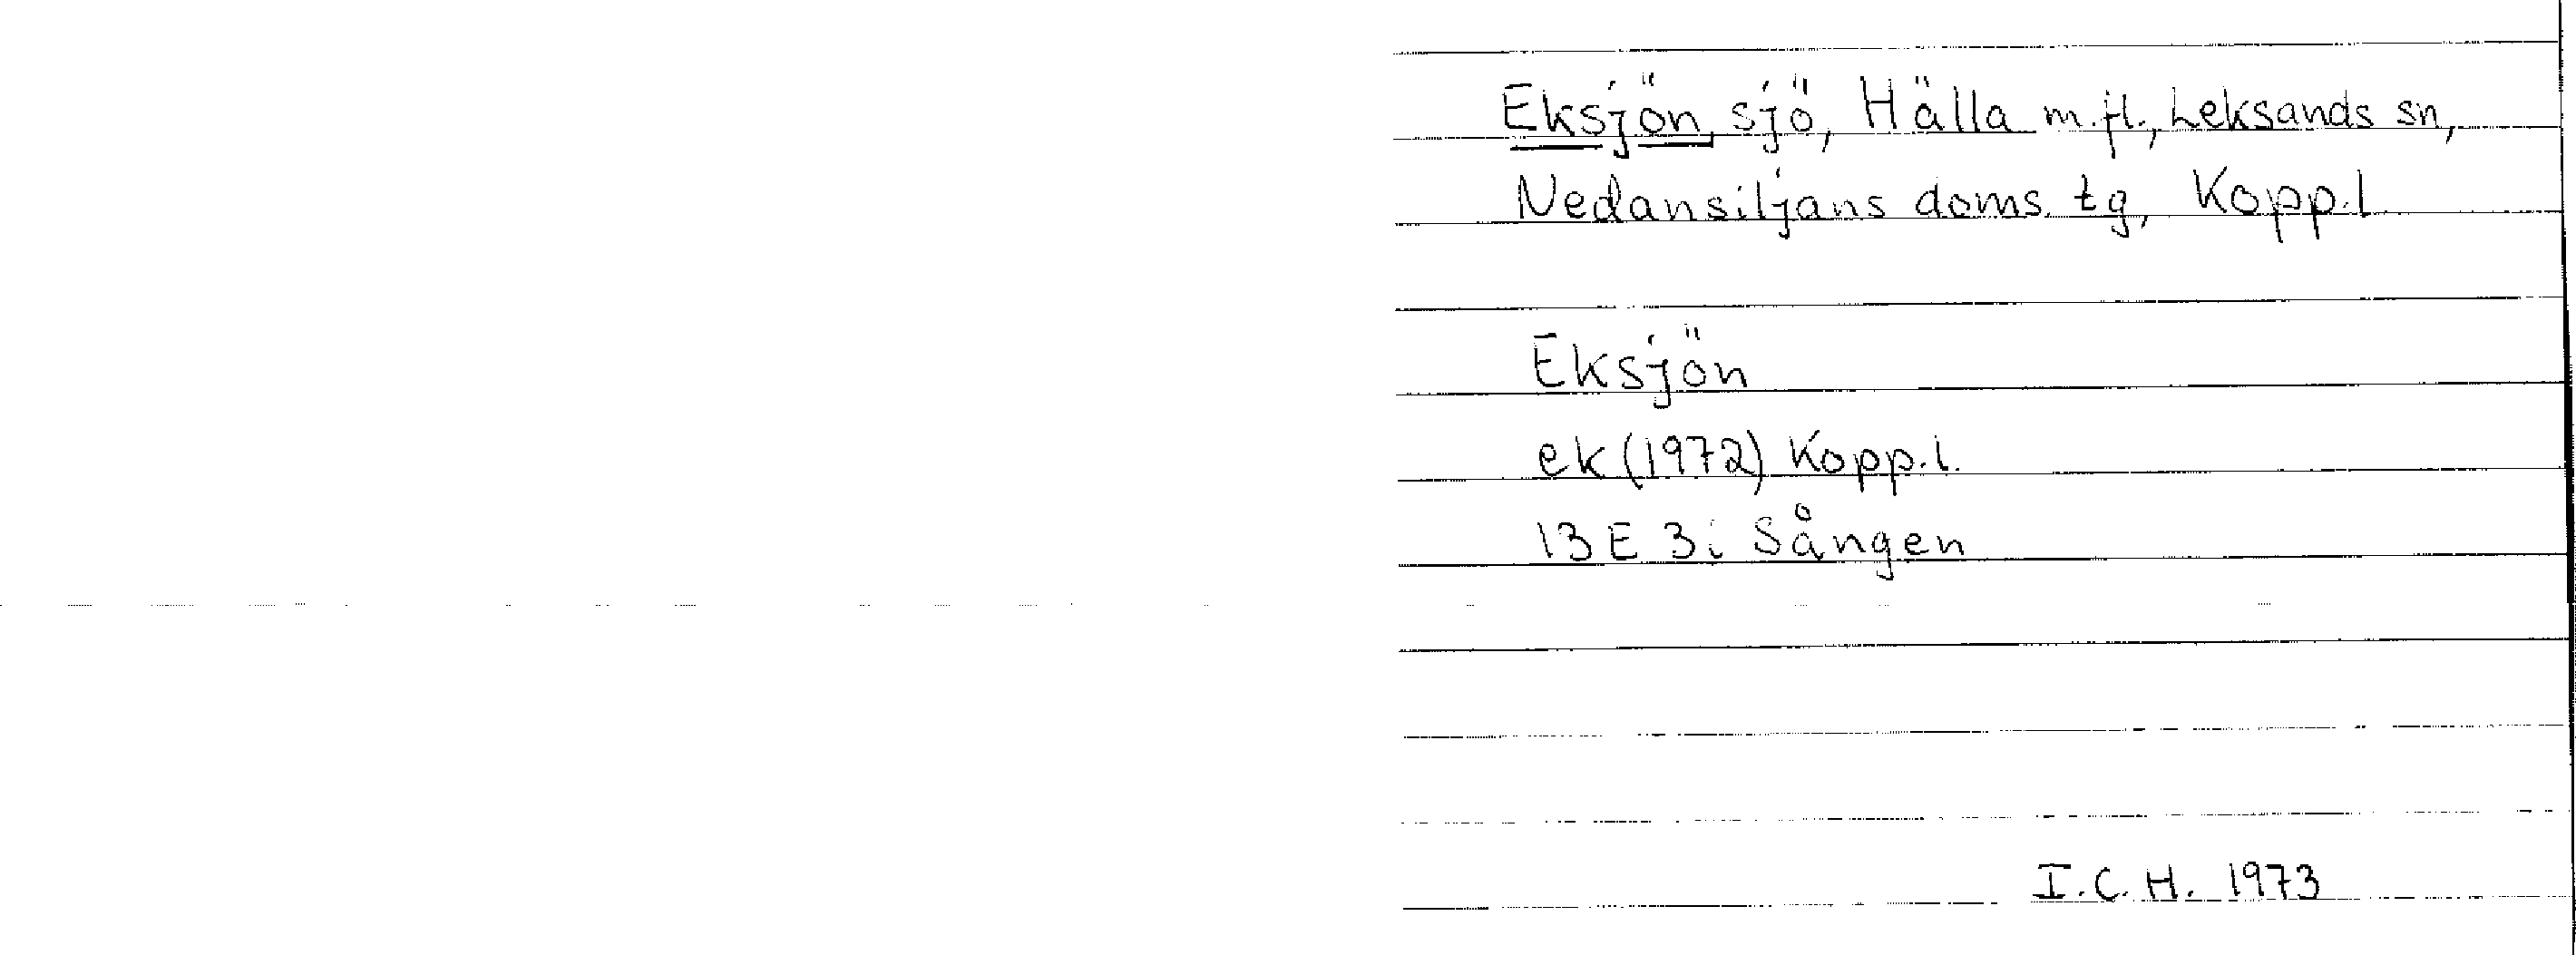 Eksjön, sjö, Hälla m.fl., Leksands sn,
Nedansiljans doms. tg, Kopp.l
Eksjön
ek (1972) Kopp.l.
13E 3i Sången
I.C.H. 1973